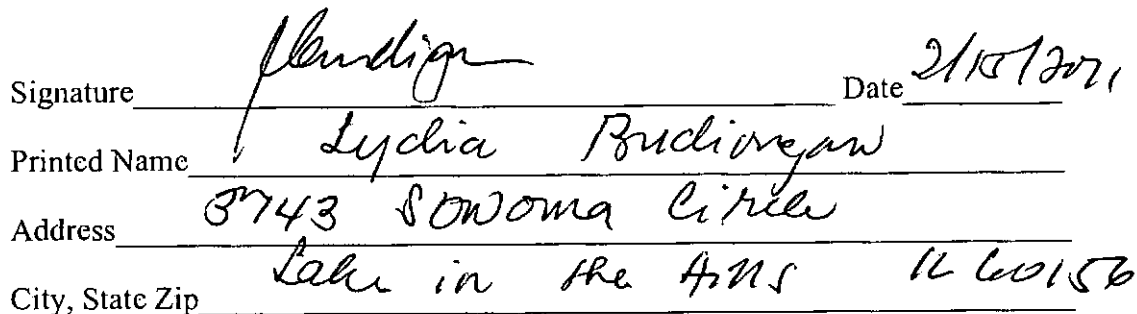 Signature Date 2/15/2011
Printed Name Lydia Budiongan
Address 3743 Sonoma Circle
City, State Zip Lake in the Hills IL 60156